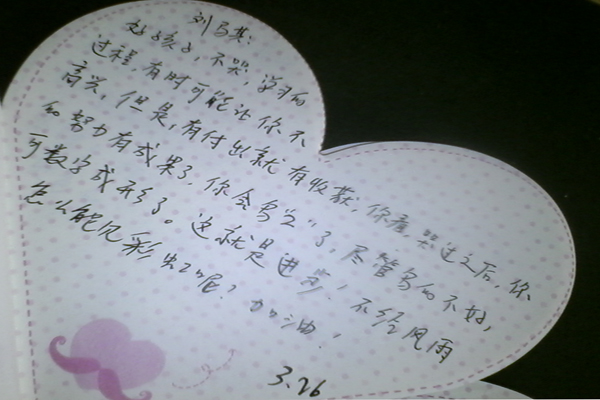 刘
好孩子,不哭,学习的
过程,有时可能让你不
高兴,但是,有付出就有收获,你看,哭过之后,你
的努力有成果了,你会写"2"了,尽管写的不好,
可数字成形了。这就是进步!不经风雨
怎么能见彩虹呢?加油!
3.26